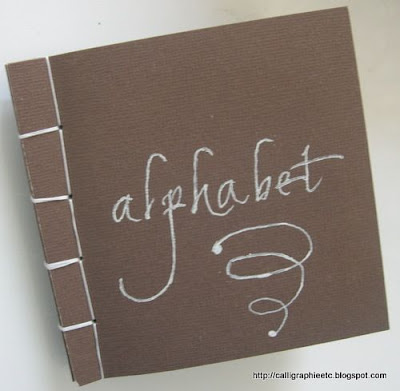 alphabet
http://calligraphieetc.blogspot.com